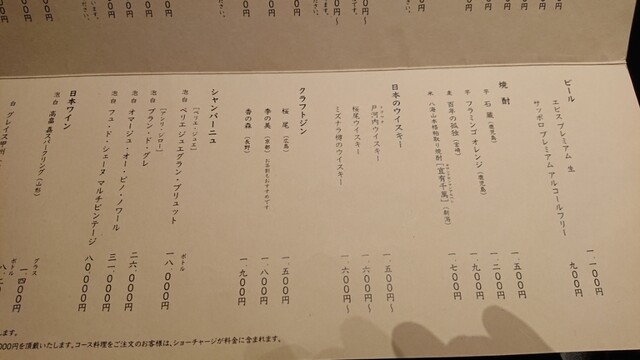 ビール
ヱビス プレミアム 生 一、一〇〇円
サッポロ プレミアム アルコールフリー 九〇〇円
焼酎
芋 石蔵(鹿児島) 一、五〇〇円
芋 フラミンゴ オレンジ(鹿児島) 一、二〇〇円
麦 百年の孤独(宮崎) 一、九〇〇円
米 八海山本格粕取り焼酎「宜有千萬」(新潟) 一、七〇〇円
日本のウイスキー
戸河内ウイスキー 一、五〇〇円〜
桜尾ウイスキー 一、六〇〇円〜
ミズナラ樽のウイスキー 一、六〇〇円〜
クラフトジン
桜尾(広島) 一、五〇〇円
季の美(京都) お茶割もおすすめです 一、八〇〇円
香の森(長野) 一、九〇〇円
シャンパーニュ
[ペリエ・ジュエ] ボトル
泡 白 ペリエ ジュエ グラン・ブリュット 一八、〇〇〇円
[アンリ・ジロー]
泡 白 ブラン・ド・グレ
泡 白 オマージュ・オー・ピノ・ノワール 二六、〇〇〇円
泡 白 フュ・ド・シェーヌ マルチビンテージ 三一、〇〇〇円
八〇、〇〇〇円
日本ワイン
グラス ボトル
泡 白 高畠 嘉スパークリング(山形) 一、四〇〇円
白 グレイス甲州
〇〇〇円を頂戴いたします。コース料理をご注文のお客様は、ショーチャージが料金に含まれます。